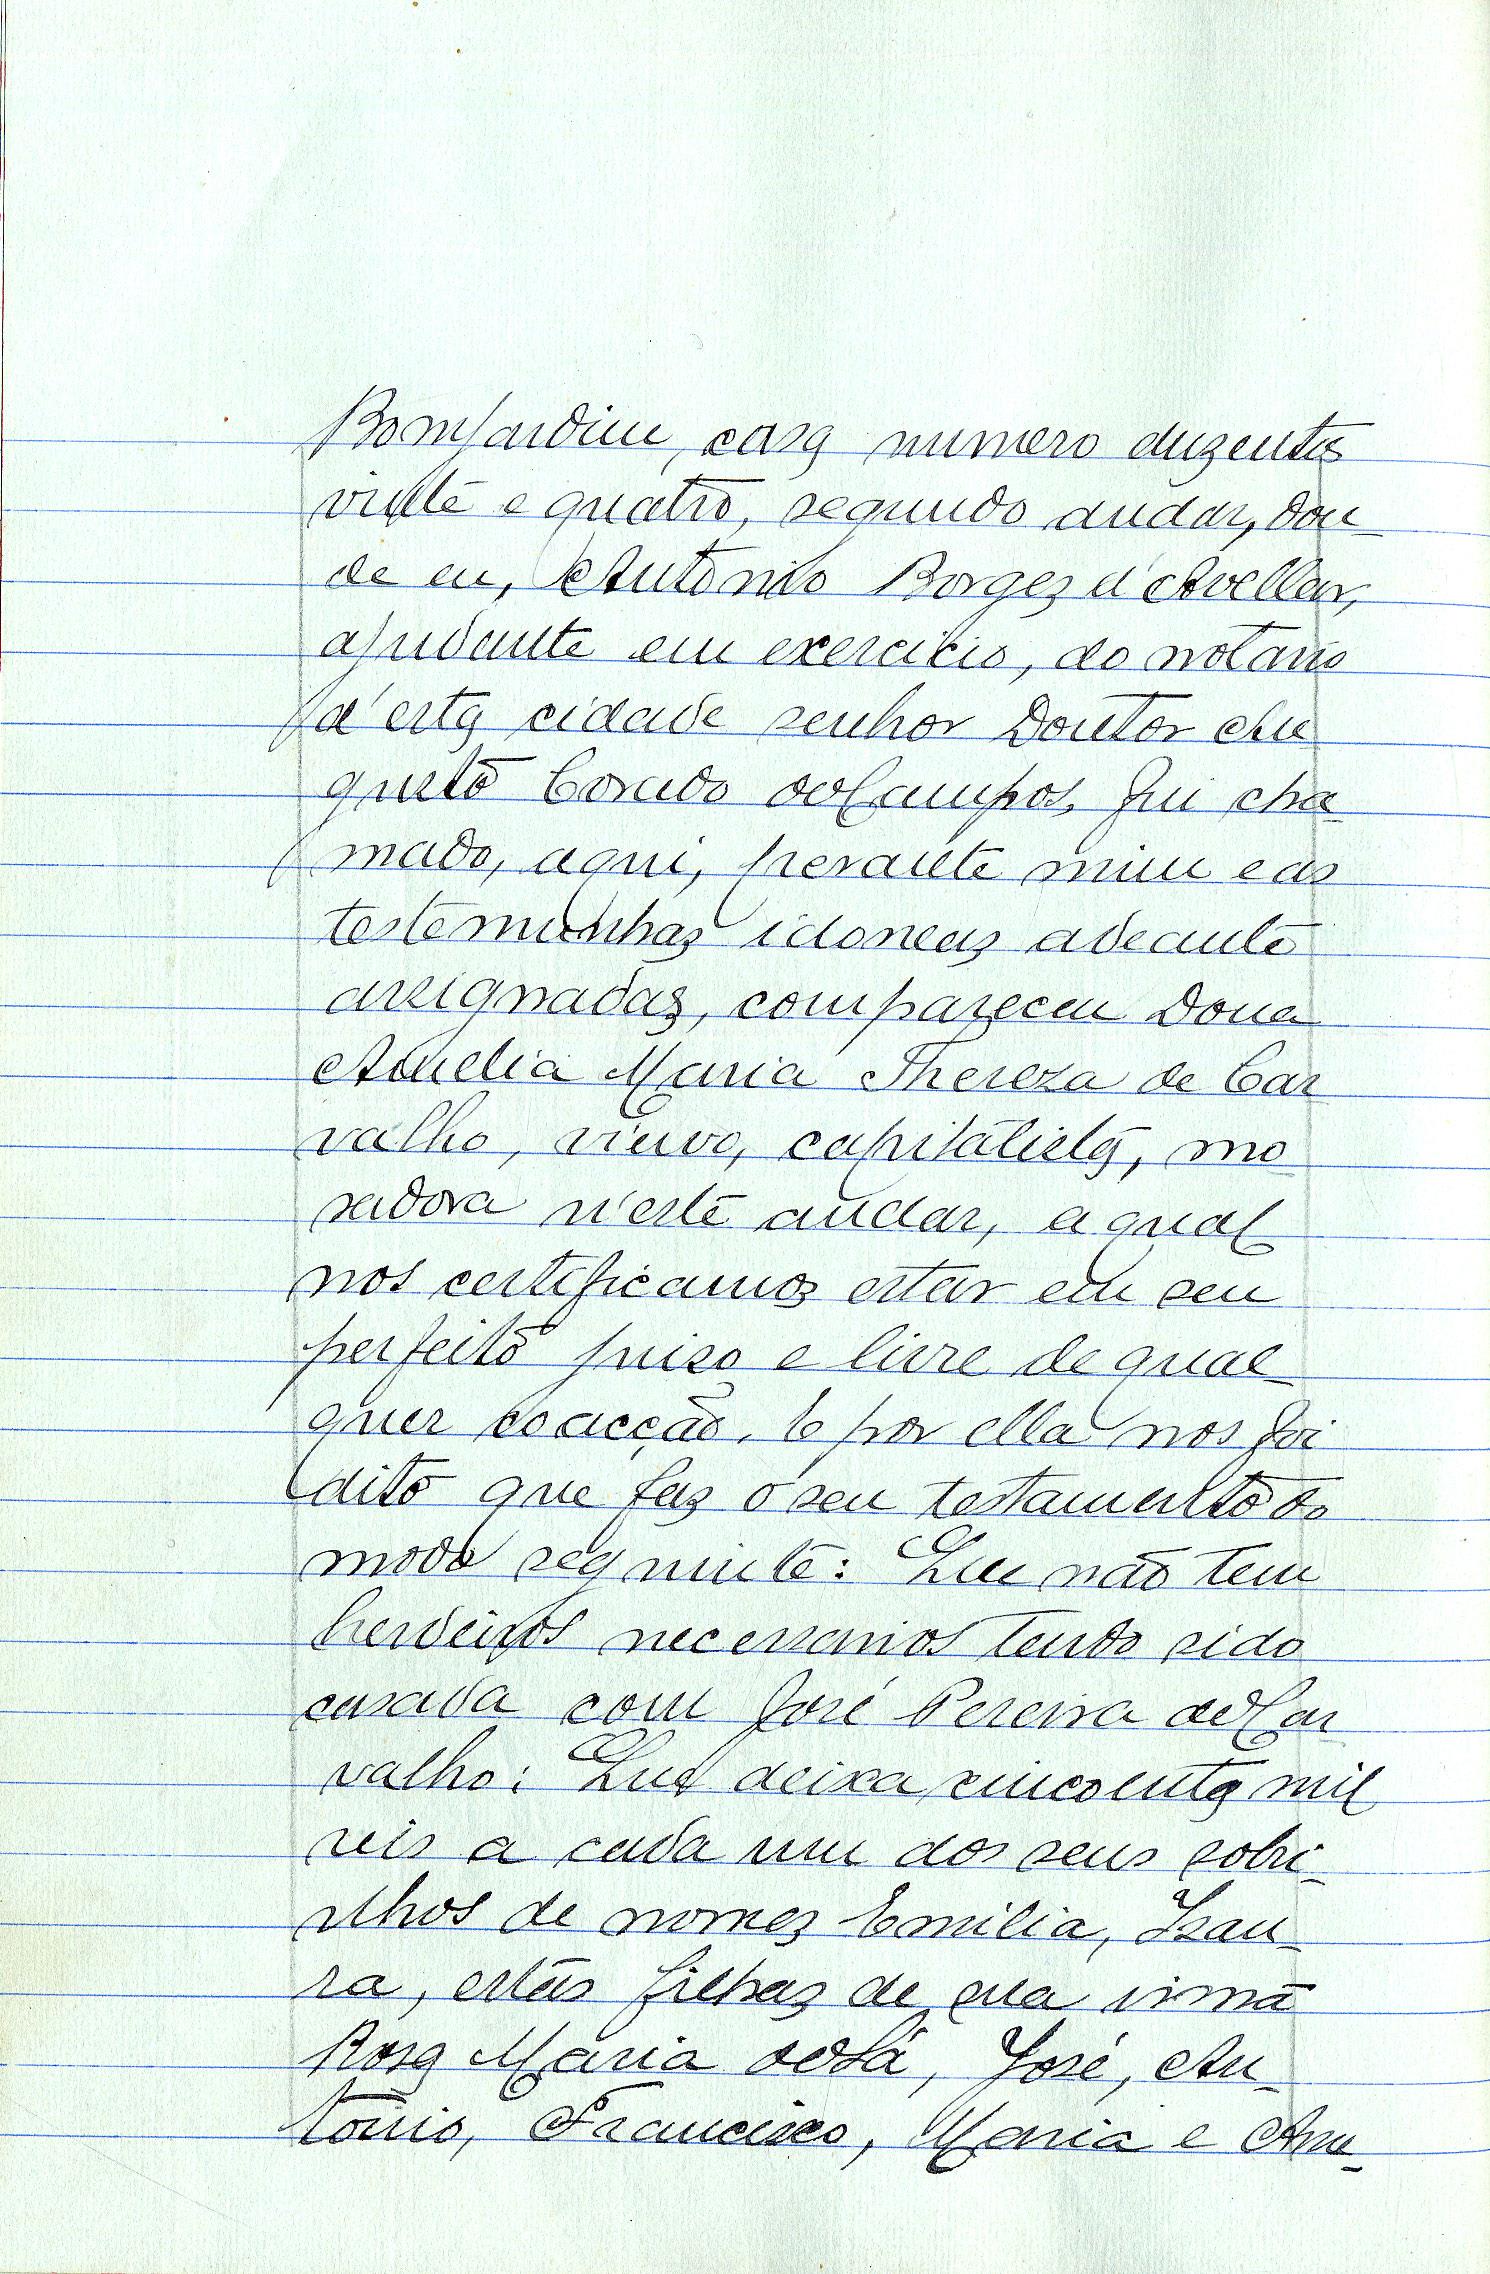 Bomjardim, casa numero duzentos
vinte e quatro, segundo andar, don-
de eu, Antonio Borges d'Avellar,
ajudante em exercicio, do notario
d'esta cidade senhor Doutor Au
gusto Corado de Campos, fui cha-
mado, aqui, perante mim e as
testemunhas idoneas adeante
assignadas, compareceu Dona
Amelia Maria Thereza de Car
valho, viuva, capitalista, mo
radora n'este andar, a qual
nos certificamos estar em seu
perfeito juiso e livre de qual-
quer coacção. E por ella nos foi
dito que faz o seu testamento do
modo seguinte: Que não tem
herdeiros necessarios tendo sido
casada com José Pereira de Car
valho: Que deixa cincoenta mil
reis a cada um dos seus sobri-
nhos de nomes Emilia, Izau-
ra, estas filhas de sua irmã
Rosa Maria de Sá, José, An-
tonio, Francisco, Maria e Ame-